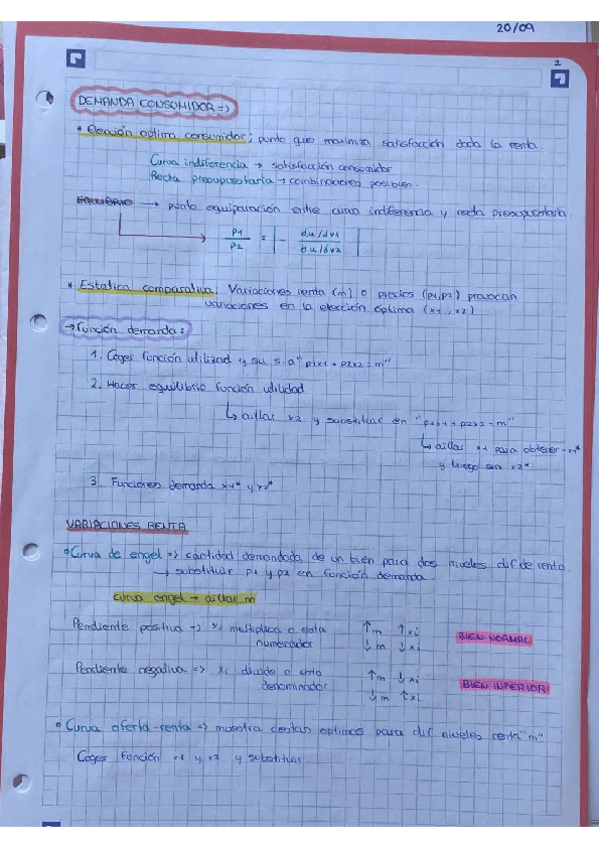 20/09
2
DEMANDA CONSUMIDOR =>
* Elección óptima consumidor; punto que maximiza satisfacción dada la renta.
Curva indiferencia → satisfacción consumidor
Recta presupuestaria → combinaciones posibles.
EQUILIBRIO → punto equiparación entre curva indiferencia y recta presupuestaria.
P1/P2 = | - du/dx1 / du/dx2 |
* Estatica comparativa; Variaciones renta (m) o precios (p1,p2) provocan
variaciones en la elección óptima (x1, x2)
→ Función demanda:
1. Coger función utilidad y su s.a "p1x1 + p2x2 = m"
2. Hacer equilibrio función utilidad
↳ aillar x2 y substituir en "p1x1 + p2x2 = m"
↳ aillar x1 para obtener x1*
y luego en x2*.
3. Funciones demanda x1* y x2*
VARIACIONES RENTA
° Curva de engel => cantidad demandada de un bien para dos niveles dif de renta.
→ substituir p1 y p2 en función demanda.
curva engel → aillar m
Pendiente positiva => xi multiplica o esta numerador ↑m ↑xi ↓m ↓xi BIEN NORMAL
Pendiente negativa => xi divide o esta denominador ↑m ↓xi ↓m ↑xi BIEN INFERIOR
° Curva oferta-renta => muestra cestas optimas para dif niveles renta "m"
Coger función x1 y x2 y substituir.